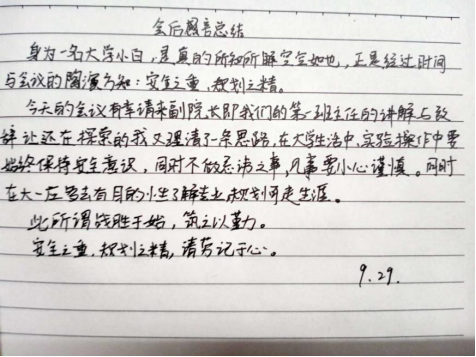 会后感言总结
身为一名大学小白，是真的所知所解空空如也，正是经过时间
与会议的陶演方知：安全之重，规划之精。
今天的会议有幸请来副院长即我们的第一班主任的讲解与致
辞让还在探索的我又理清了一条思路，在大学生活中，实验操作中要
始终保持安全意识，同时不做忌讳之事，凡事要小心谨慎。同时
在大一左去有目的小生了解专业，规划可走生涯。
此所谓战胜于始，筑之以勤力。
安全之重，规划之精，请劳记于心。
9.29.